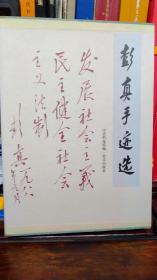 彭真手迹选
发展社会主义
民主健全社会
主义法制
彭真